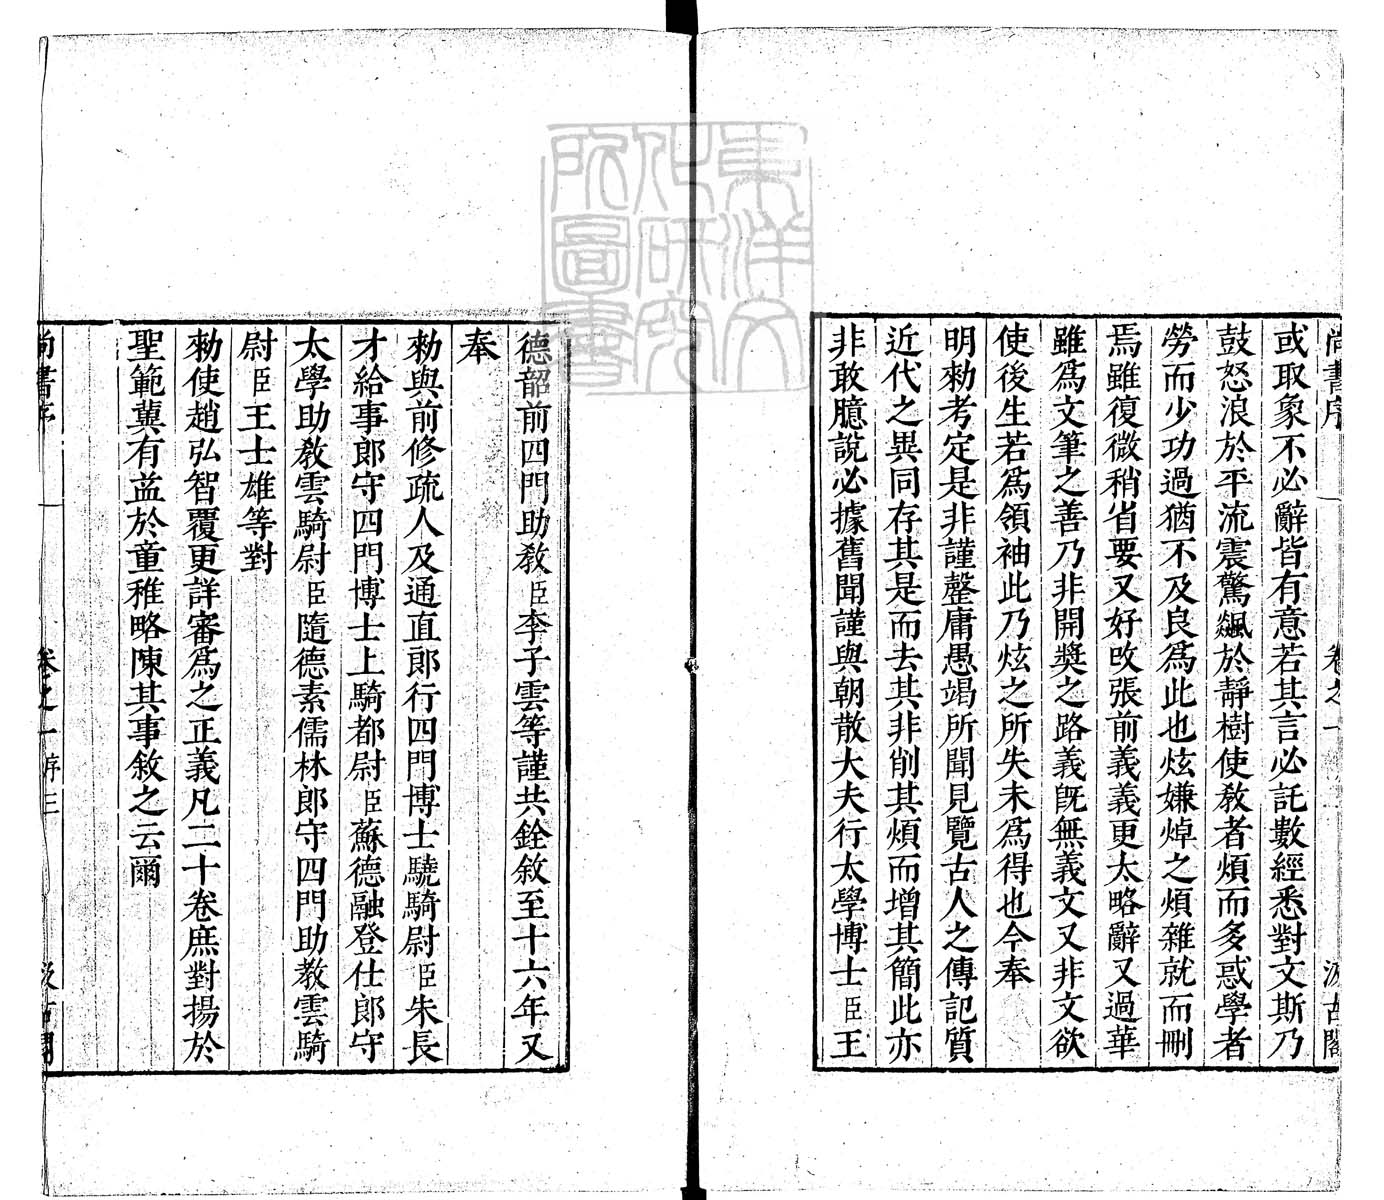 尚書序 卷之一 汲古閣
或取象不必辭皆有意若其言必託數經悉對文斯乃
鼓怒浪於平流震驚飆於靜樹使教者煩而多惑學者
勞而少功過猶不及良爲此也炫嫌焯之煩雜就而刪
焉雖復微稍省要又好改張前義義更太略辭又過華
雖爲文筆之善乃非開奬之路義既無義文又非文欲
使後生若爲領袖此乃炫之所失未爲得也今奉
明勑考定是非謹罄庸愚竭所聞見覽古人之傳記質
近代之異同存其是而去其非削其煩而增其簡此亦
非敢臆說必據舊聞謹與朝散大夫行太學博士臣王
德韶前四門助教臣李子雲等謹共銓敘至十六年又
奉
勑與前修疏人及通直郎行四門博士驍騎尉臣朱長
才給事郎守四門博士上騎都尉臣蘇德融登仕郎守
太學助教雲騎尉臣隨德素儒林郎守四門助教雲騎
尉臣王士雄等對
勑使趙弘智覆更詳審爲之正義凡二十卷庶對揚於
聖範冀有益於童稚略陳其事敘之云爾
尚書序 卷之一 序三 汲古閣
東洋文化研究所圖書